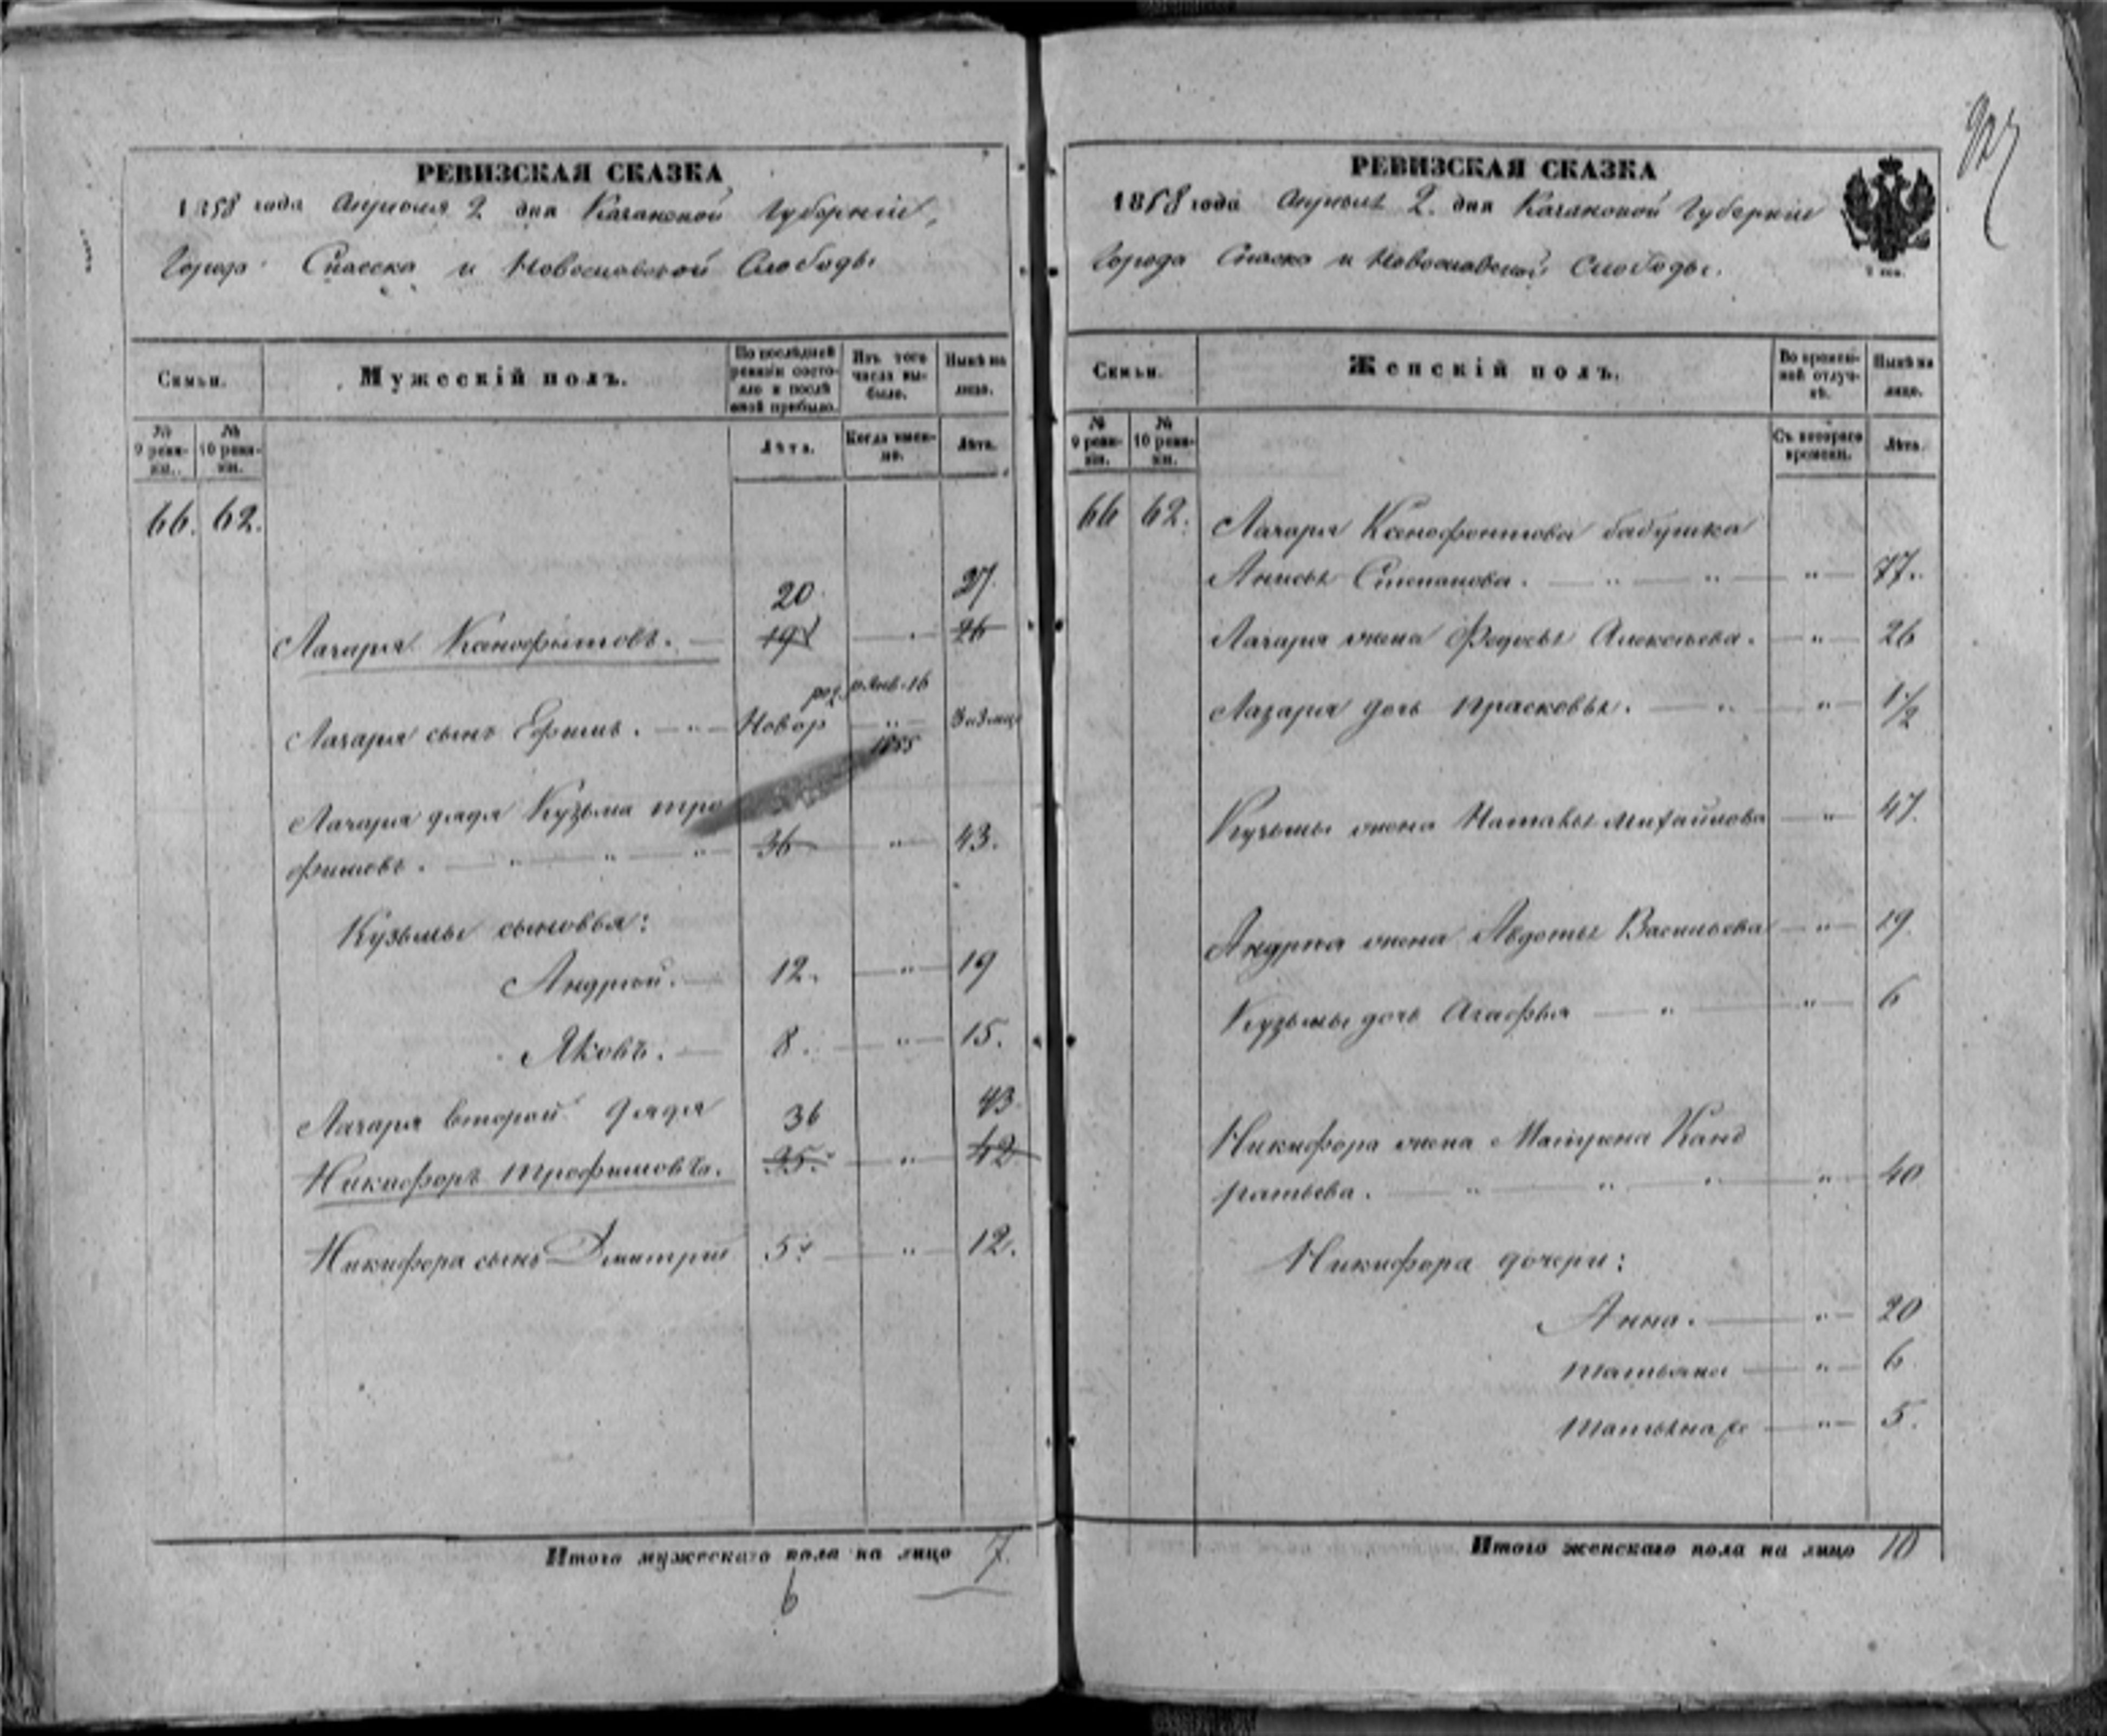 РЕВИЗСКАЯ СКАЗКА
1858 года Апреля 2 дня Казанской Губернiи,
Города Спасска и Новоспасской Слободы
Семьи.
Мужескiй полъ.
По послѣдней ревизiи состояло и послѣ оной прибыло.
Изъ того числа выбыло.
Нынѣ на лицо.
№ 9 ревизiи.
№ 10 ревизiи.
Лѣта.
Когда именно.
Лѣта.
66. 62.
20 27.
Лазарь Ксенофонтовъ. 19 26
род. Янв. 16
Лазаря сынъ Ефимъ. Новор 3 и 3 мца
1855
Лазаря дядя Кузьма Тро
фимовъ. 36 43.
Кузьмы сыновья:
Андрей. 12. 19
Яковъ. 8. 15.
Лазаря второй дядя 36 43
Никифоръ Трофимовъ. 35. 42
Никифора сынъ Дмитрiй 5. 12.
Итого мужескаго пола на лицо 7.
6
РЕВИЗСКАЯ СКАЗКА
1858 года Апреля 2. дня Казанской Губернiи
Города Спасска и Новоспасской Слободы.
Семьи.
Женскiй полъ.
Во временной отлучкѣ.
Нынѣ на лицо.
№ 9 ревизiи.
№ 10 ревизiи.
Съ котораго времени.
Лѣта.
66 62.
Лазаря Ксенофонтова бабушка
Анисья Степанова. 77.
Лазаря жена Федосья Алексѣева. 26
Лазаря дочь Прасковья. 1/2
Кузьмы жена Наталья Михайлова 47.
Андрея жена Авдотья Васильева 19.
Кузьмы дочь Агафья 6
Никифора жена Матрена Канд
ратьева. 40
Никифора дочери:
Анна. 20
Татьяна 6
Татьяна 5.
Итого женскаго пола на лицо 10